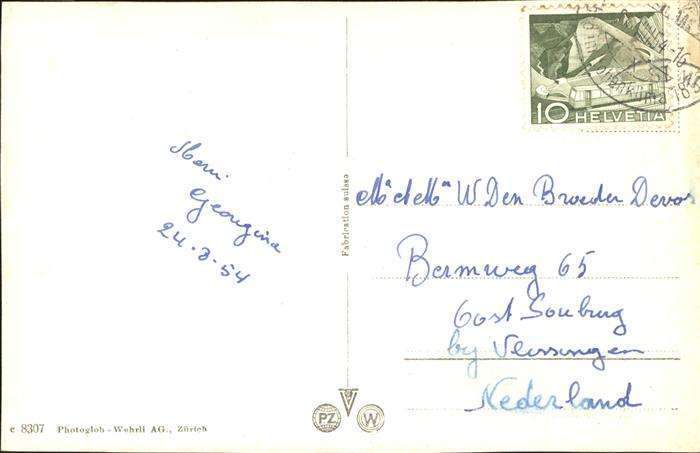 10 HELVETIA
Georgina
24-8-54
Fabrication suisse
W. Den Broeder Devos
Bermweg 65
Oost Souburg
by Vlissingen
Nederland
c 8307 Photoglob-Wehrli AG., Zürich
PZ W